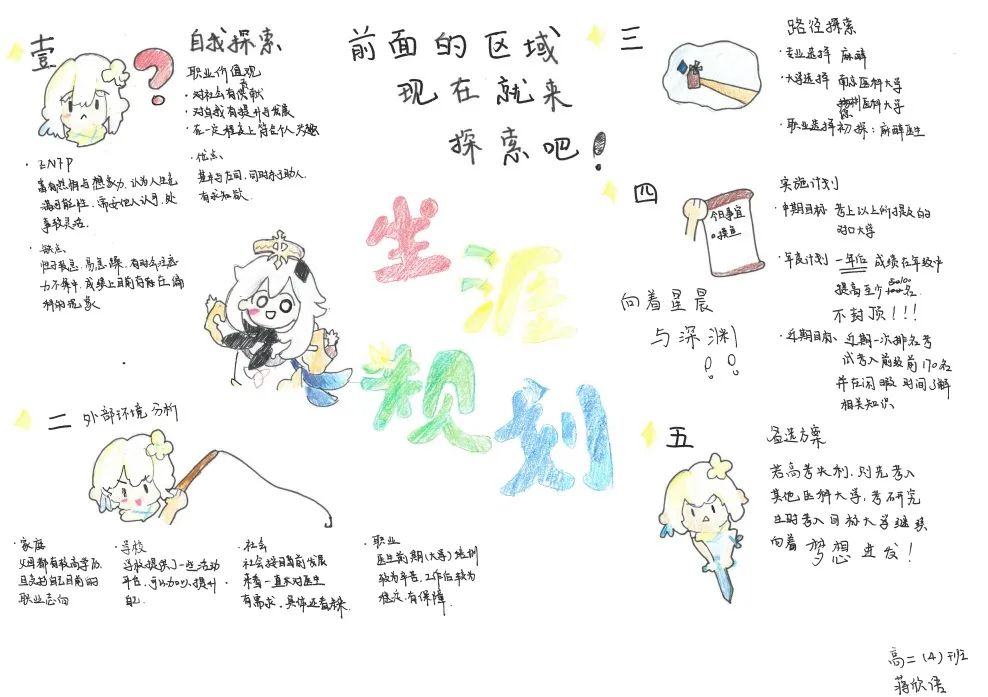 前面的区域
现在就来
探索吧!
生涯
规划
壹
自我探索
职业价值观
·对社会有贡献
·对自我有提升与发展
·在一定程度上符合个人兴趣
·优点
善于与人同,同时乐于助人.
有求知欲.
·ENFP
富有热情与想象力,认为人生充
满可能性,需要他人认可,处
事较灵活.
·缺点
性子较急,易急躁,有时会注意
力不集中,成绩上目前有存在偏
科的现象
二 外部环境分析
·家庭
父母都有较高学历
且支持自己目前的
职业志向
·学校
学校提供了一些活动
平台,可以加以提升
自己.
·社会
社会按目前发展
来看一直来对医生
有需求,具体还看未来.
·职业
医生前期(大学)培训
较为辛苦,工作后较为
稳定,有保障.
三
路径探索
·专业选择 麻醉
·大学选择 南京医科大学
徐州医科大学
·职业选择初探:麻醉医生
四
今日事宜
摸鱼
向着星辰
与深渊!!
实施计划
·中期目标 考上以上所提及的
对口大学
·年度计划 一年后 成绩在年级中
提高至少 名
不封顶!!!
·近期目标 近期一次排名考
试考入前级前170名
并在闲暇时间了解
相关知识.
五
备选方案
若高考失利,则先考入
其他医科大学,考研究
生时考入目标大学继续
向着梦想进发!
高二(4)班
蒋欣语